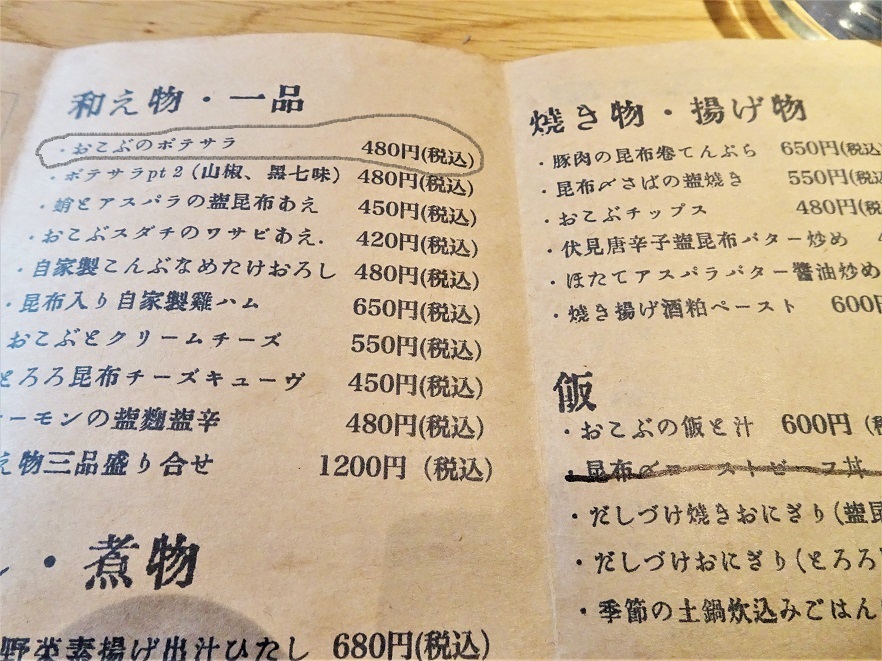 和え物・一品
・おこぶのポテサラ 480円(税込)
・ポテサラpt2(山椒、黒七味) 480円(税込)
・蛸とアスパラの塩昆布あえ 450円(税込)
・おこぶスダチのワサビあえ. 420円(税込)
・自家製こんぶなめたけおろし 480円(税込)
・昆布入り自家製雞ハム 650円(税込)
おこぶとクリームチーズ 550円(税込)
とろろ昆布チーズキューヴ 450円(税込)
ーモンの塩麴塩辛 480円(税込)
え物三品盛り合せ 1200円(税込)
・煮物
野菜素揚げ出汁ひたし 680円(税込)
焼き物・揚げ物
・豚肉の昆布巻てんぷら 650円(税込
・昆布〆さばの塩焼き 550円(税
・おこぶチップス 480円(税
・伏見唐辛子塩昆布バター炒め
・ほたてアスパラバター醬油炒め
・焼き揚げ酒粕ペースト 600円
飯
・おこぶの飯と汁 600円(税
・昆布〆ローストビーフ丼
・だしづけ焼きおにぎり(塩昆
・だしづけおにぎり(とろろ
・季節の土鍋炊込みごはん